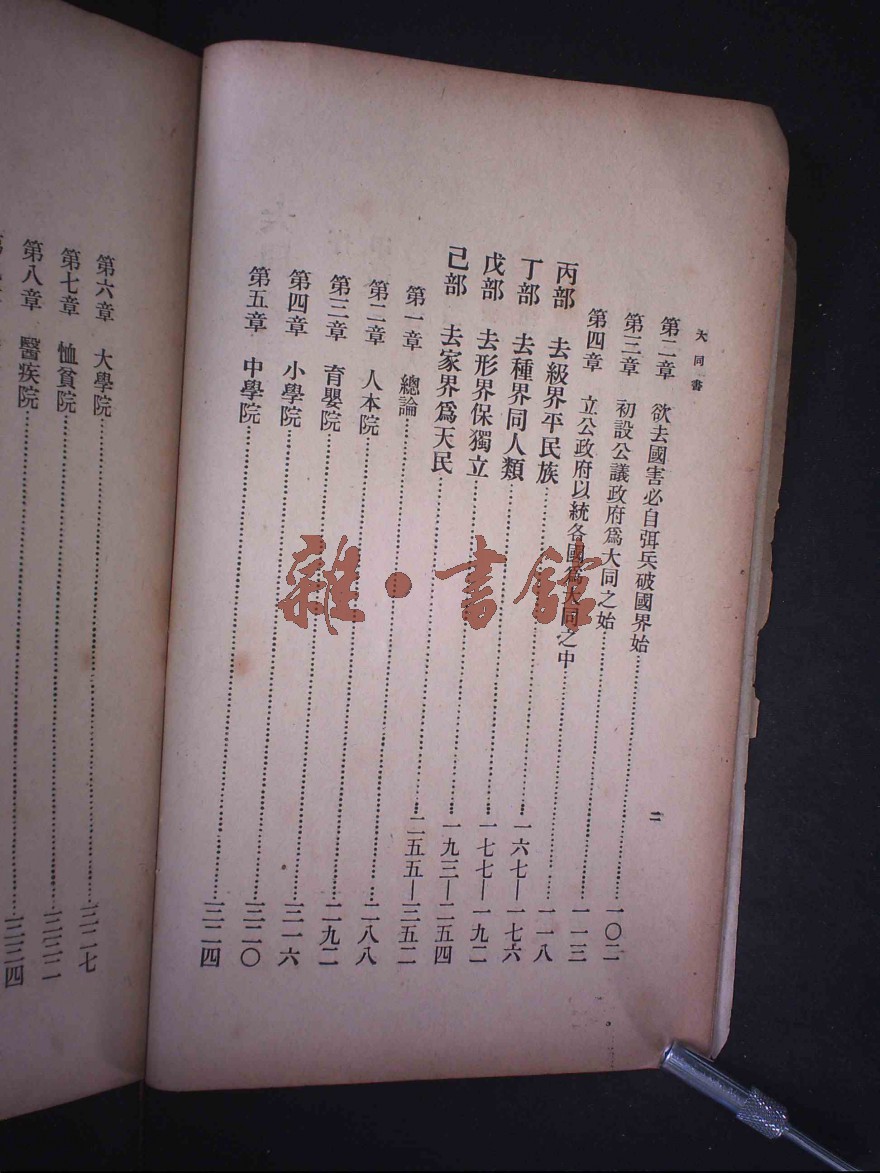 大同書
第二章　欲去國害必自弭兵破國界始……一〇二
第三章　初設公議政府爲大同之始……一一三
第四章　立公政府以統各國爲大同之中……一一八
丙部　去級界平民族……一六七—一七六
丁部　去種界同人類……一七七—一九二
戊部　去形界保獨立……一九三—二五四
己部　去家界爲天民……二五五—三五二
第一章　總論……二八八
第二章　人本院……二九二
第三章　育嬰院……三一六
第四章　小學院……三二〇
第五章　中學院……三二四
二
第六章　大學院……三二七
第七章　恤貧院……三三二
第八章　醫疾院……三三四
雜·書館